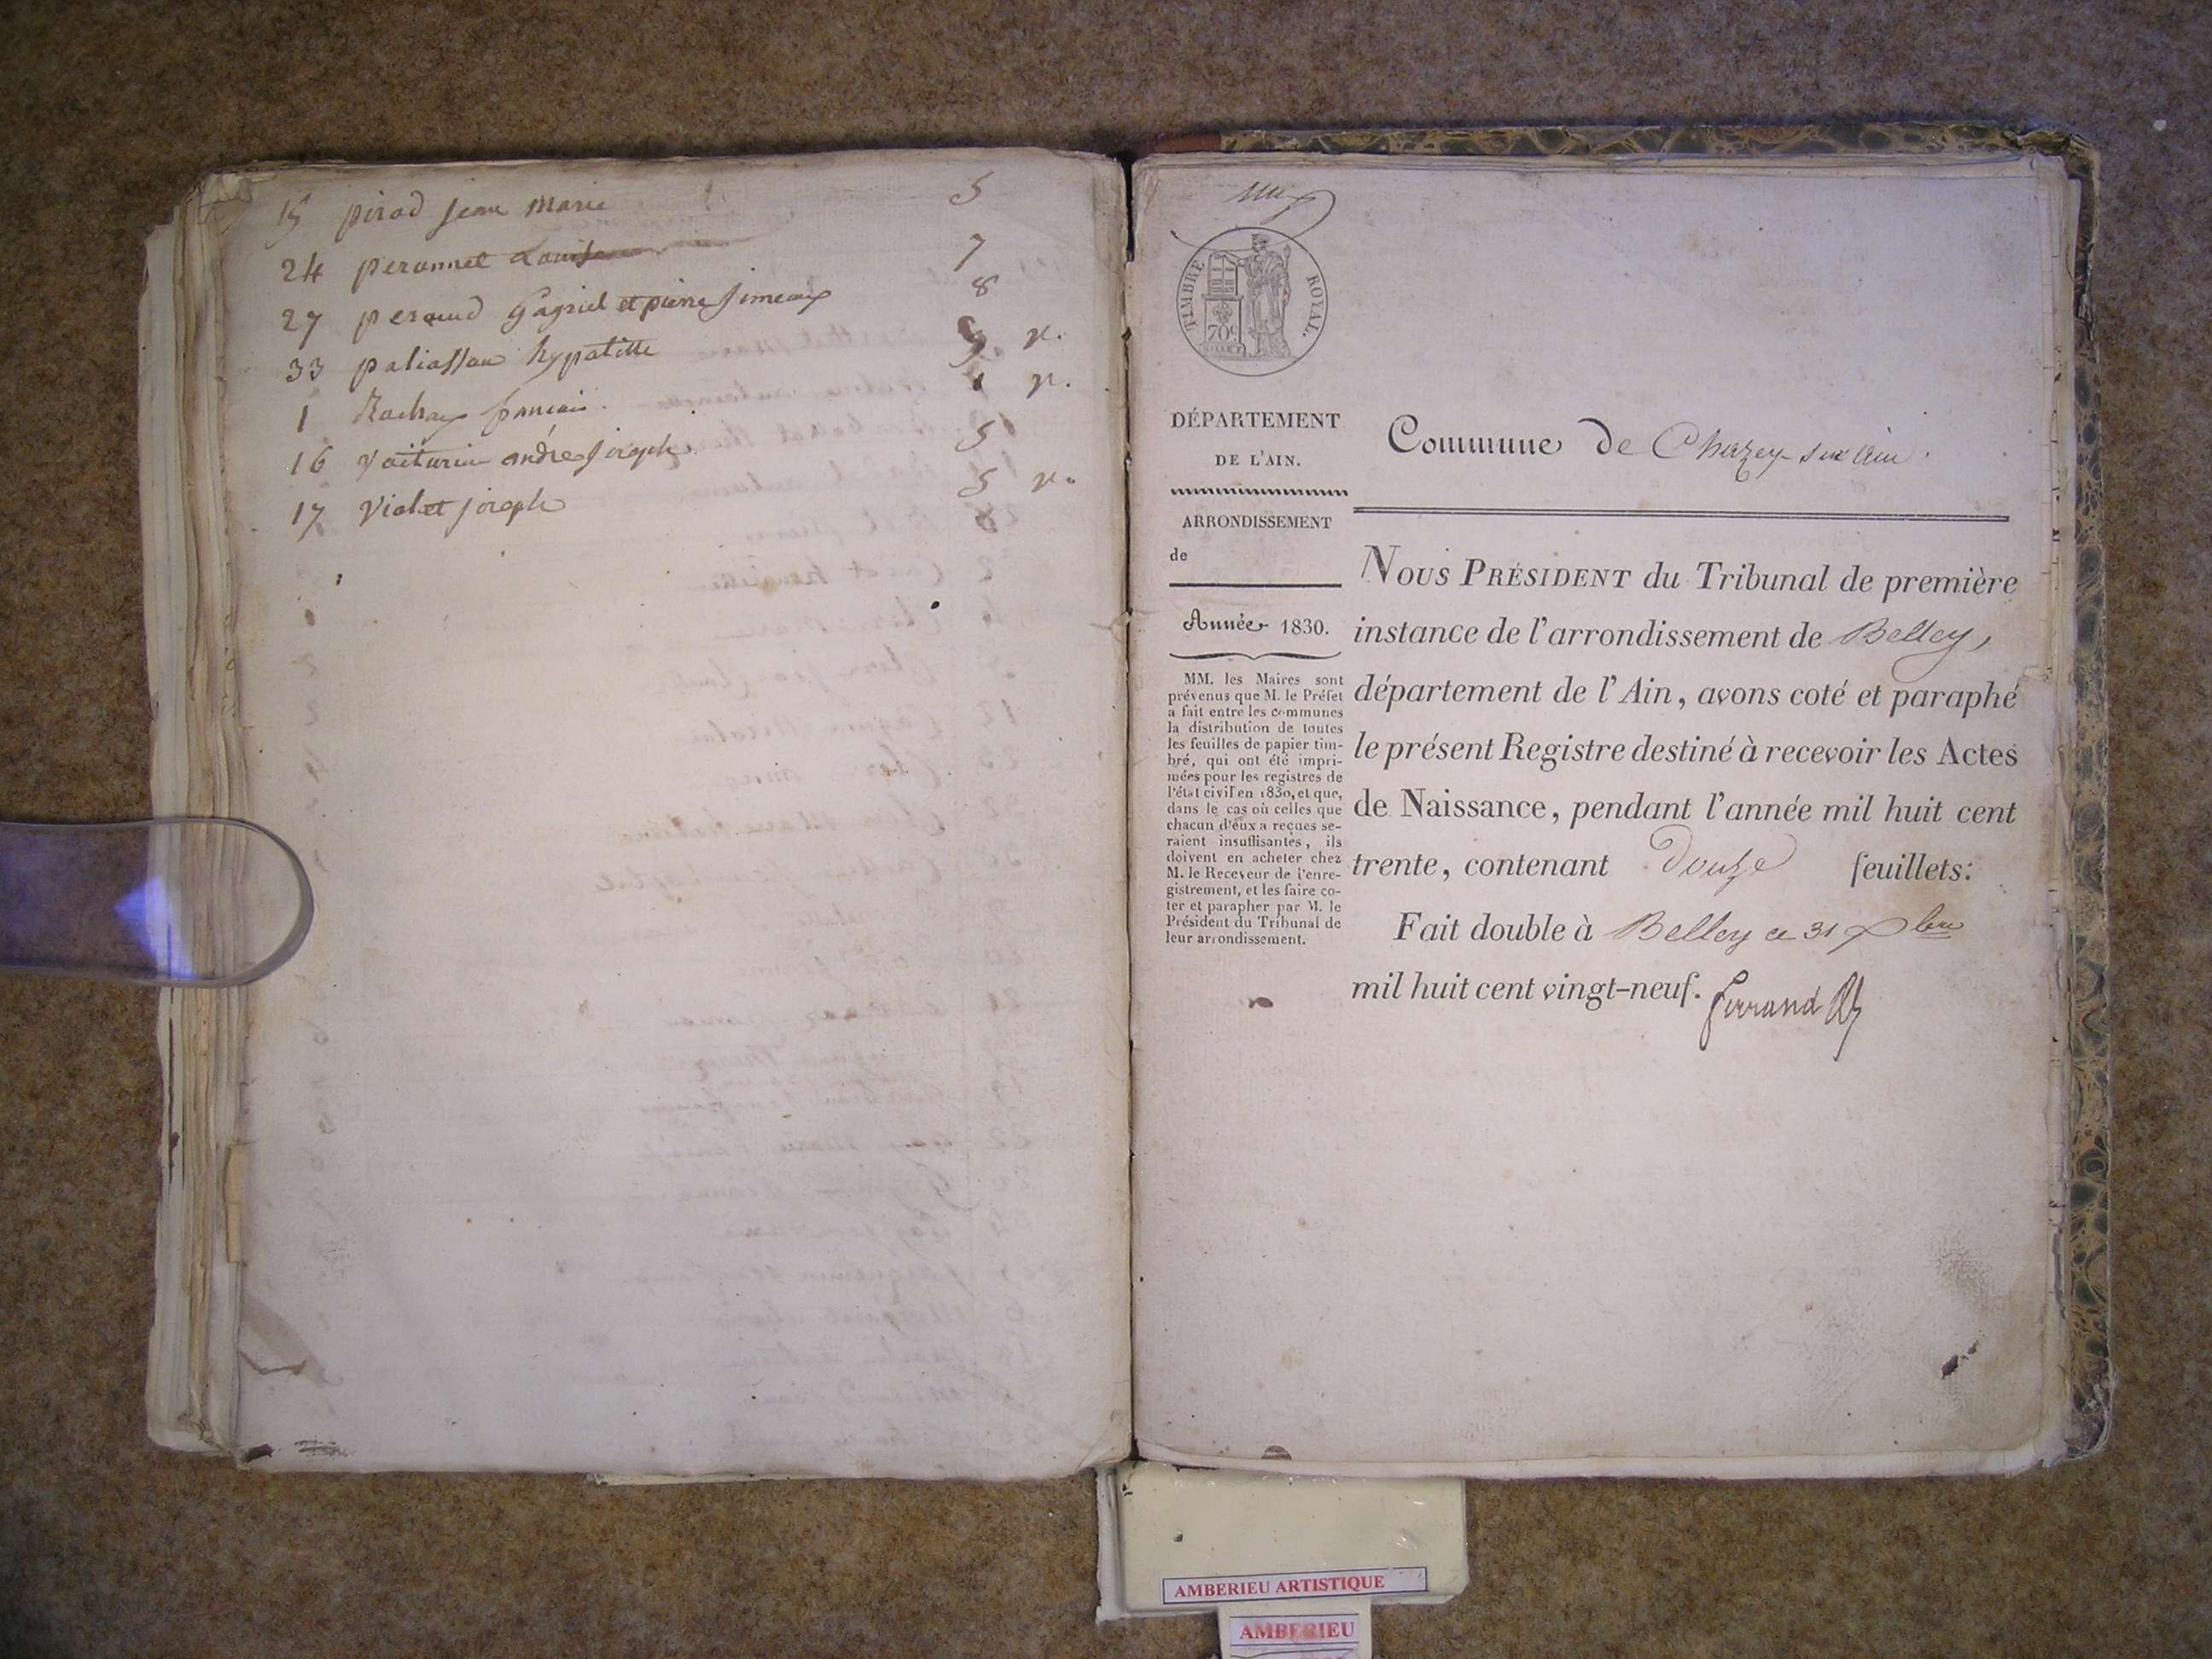 15 pirod jean Marie 5
24 peronnet Louise 7
27 peraud Gagriel et pierre jimeaux 8
33 paliassau hypolitte 9. v.
1 Rachay francois. 1 v.
16 Voiturin andré joseph 5
17 Violet joseph 5 v.
8
TIMBRE ROYAL.
70c
DÉPARTEMENT
DE L'AIN.
ARRONDISSEMENT
de
Année 1830.
MM. les Maires sont
prévenus que M. le Préfet
a fait entre les communes
la distribution de toutes
les feuilles de papier tim-
bré, qui ont été impri-
mées pour les registres de
l'état civil en 1830, et que,
dans le cas où celles que
chacun d'eux a reçues se-
raient insuffisantes, ils
doivent en acheter chez
M. le Receveur de l'enre-
gistrement, et les faire co-
ter et parapher par M. le
Président du Tribunal de
leur arrondissement.
Commune de Chazey-sur ain.
NOUS PRÉSIDENT du Tribunal de première
instance de l'arrondissement de Belley,
département de l'Ain, avons coté et paraphé
le présent Registre destiné à recevoir les Actes
de Naissance, pendant l'année mil huit cent
trente, contenant Douze feuillets:
Fait double à Belley ce 31 Xbre
mil huit cent vingt-neuf. Ferrand
AMBERIEU ARTISTIQUE
AMBERIEU